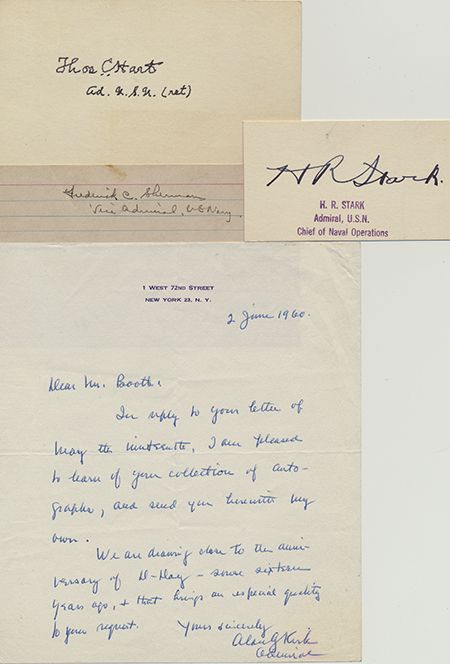 Thos. C. Hart
Ad. U.S.N. (ret)
H R Stark.
H. R. STARK
Admiral, U.S.N.
Chief of Naval Operations
Frederick C. Sherman
Vice Admiral, US Navy
1 WEST 72ND STREET
NEW YORK 23, N. Y.
2 June 1960.
Dear Mr. Booth.
In reply to your letter of
May the nineteenth, I am pleased
to learn of your collection of auto-
graphs, and send you herewith my
own.
We are drawing close to the anni-
versary of D-Day - some sixteen
years ago, & that brings an especial quality
to your request.
Yours sincerely
Alan G Kirk
Admiral